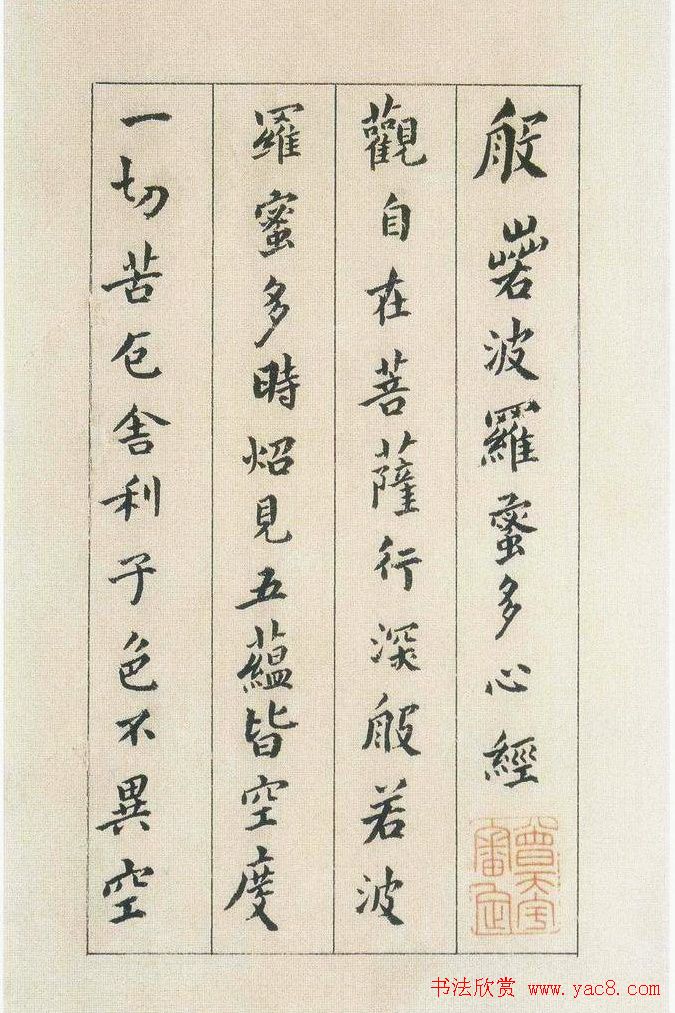 般若波羅蜜多心經
觀自在菩薩行深般若波
羅蜜多時炤見五蘊皆空度
一切苦厄舍利子色不異空
审定
书法欣赏 www.yac8.com